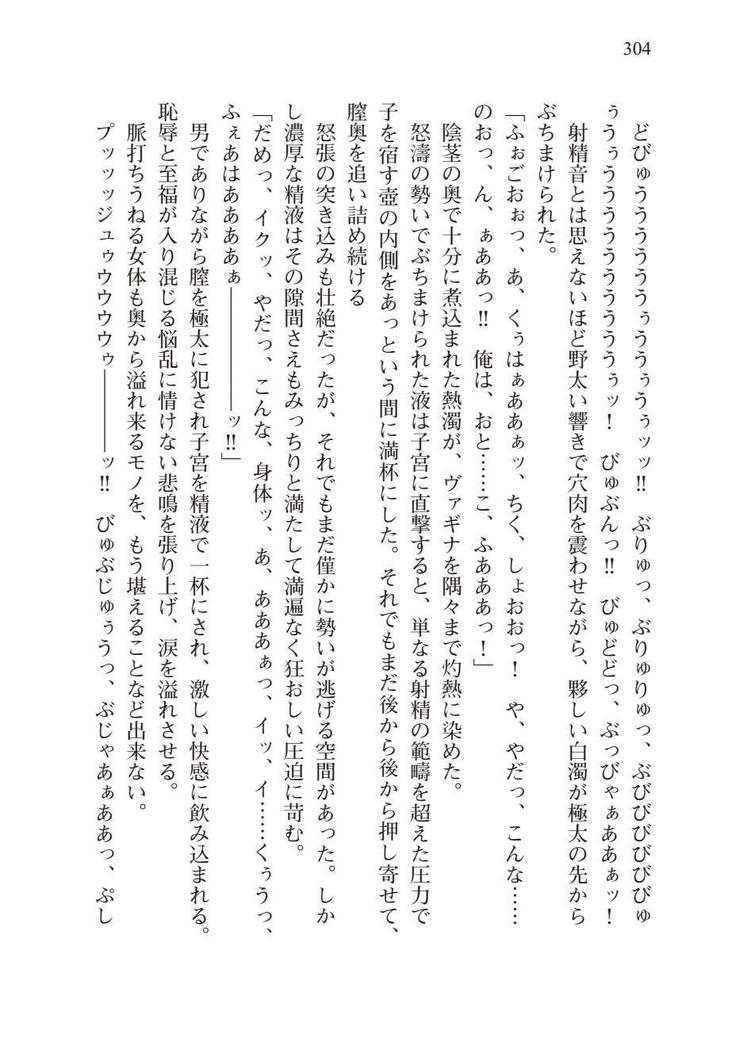 304
どびゅうううううぅううぅうぅッッ‼　ぶりゅっ、ぶりゅりゅっ、ぶびびびびびびゅ
ぅうぅうううううううううぅッ！　びゅぶんっ‼　びゅどどっ、ぶっびゃぁああぁッ！
射精音とは思えないほど野太い響きで穴肉を震わせながら、夥しい白濁が極太の先から
ぶちまけられた。
「ふぉごおぉっ、あ、くぅはぁああぁッ、ちく、しょおおっ！　や、やだっ、こんな……
のおっ、ん、ぁああっ‼　俺は、おと……こ、ふあああっ！」
陰茎の奥で十分に煮込まれた熱濁が、ヴァギナを隅々まで灼熱に染めた。
怒濤の勢いでぶちまけられた液は子宮に直撃すると、単なる射精の範疇を超えた圧力で
子を宿す壺の内側をあっという間に満杯にした。それでもまだ後から後から押し寄せて、
膣奥を追い詰め続ける
怒張の突き込みも壮絶だったが、それでもまだ僅かに勢いが逃げる空間があった。しか
し濃厚な精液はその隙間さえもみっちりと満たして満遍なく狂おしい圧迫に苛む。
「だめっ、イクッ、やだっ、こんな、身体ッ、あ、あああぁっ、イッ、イ……くぅうっ、
ふぇあはああああぁ――――――ッ‼」
男でありながら膣を極太に犯され子宮を精液で一杯にされ、激しい快感に飲み込まれる。
恥辱と至福が入り混じる悩乱に情けない悲鳴を張り上げ、涙を溢れさせる。
脈打ちうねる女体も奥から溢れ来るモノを、もう堪えることなど出来ない。
プッッッジュゥウウウウゥ――――ッ‼　びゅぶじゅぅうっ、ぶじゃあぁああっ、ぷし